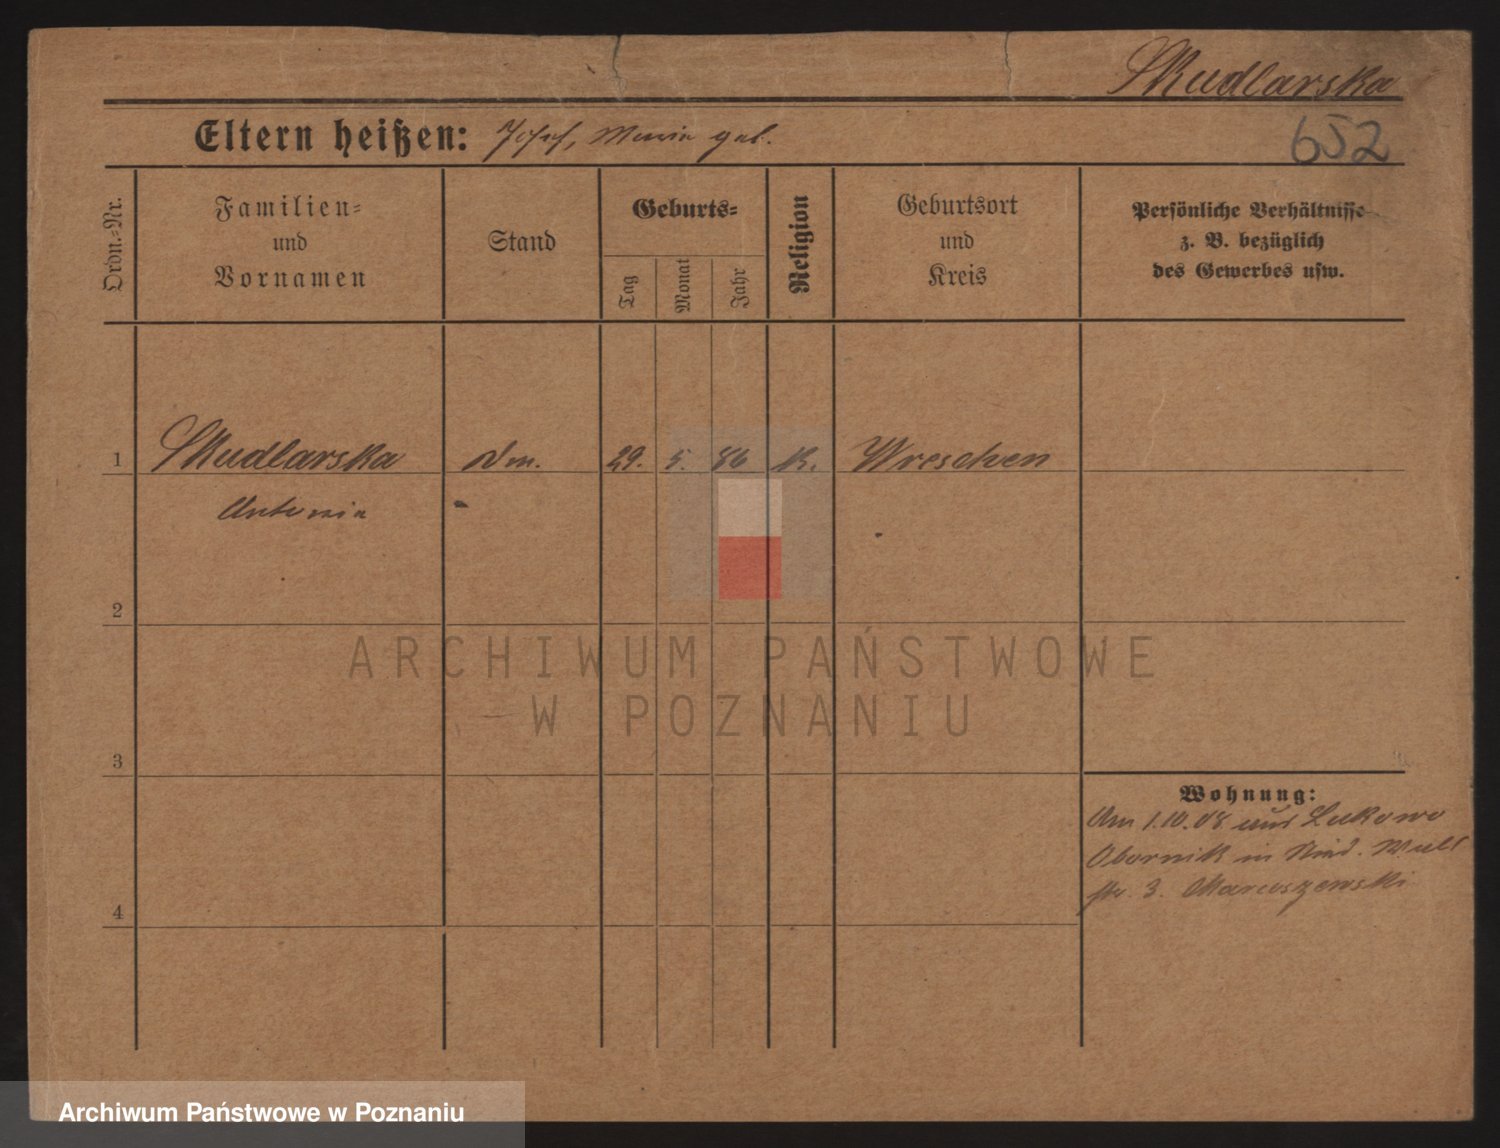 Skudlarska
Eltern heißen: Josef, Maria geb.
652
Ordn.=Nr.
Familien=
und
Vornamen
Stand
Geburts=
Tag
Monat
Jahr
Religion
Geburtsort
und
Kreis
Persönliche Verhältnisse
z. B. bezüglich
des Gewerbes usw.
1 Skudlarska 29. 5. 86 K. Wreschen
Antonia
2
ARCHIWUM PAŃSTWOWE
W POZNANIU
3
Wohnung:
Am 1.10.08 aus Lukowo
Obornik in
str. 3.
4
Archiwum Państwowe w Poznaniu